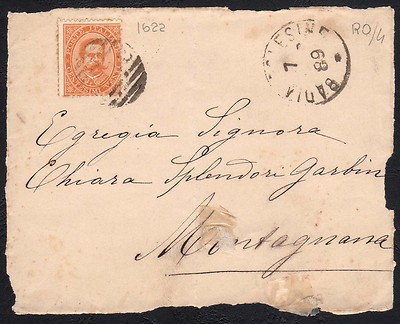 1622
RO/4
POSTE ITALIANE
BADIA POLESINE
7
89
Egregia Signora
Chiara Splendori Garbin
Montagnana